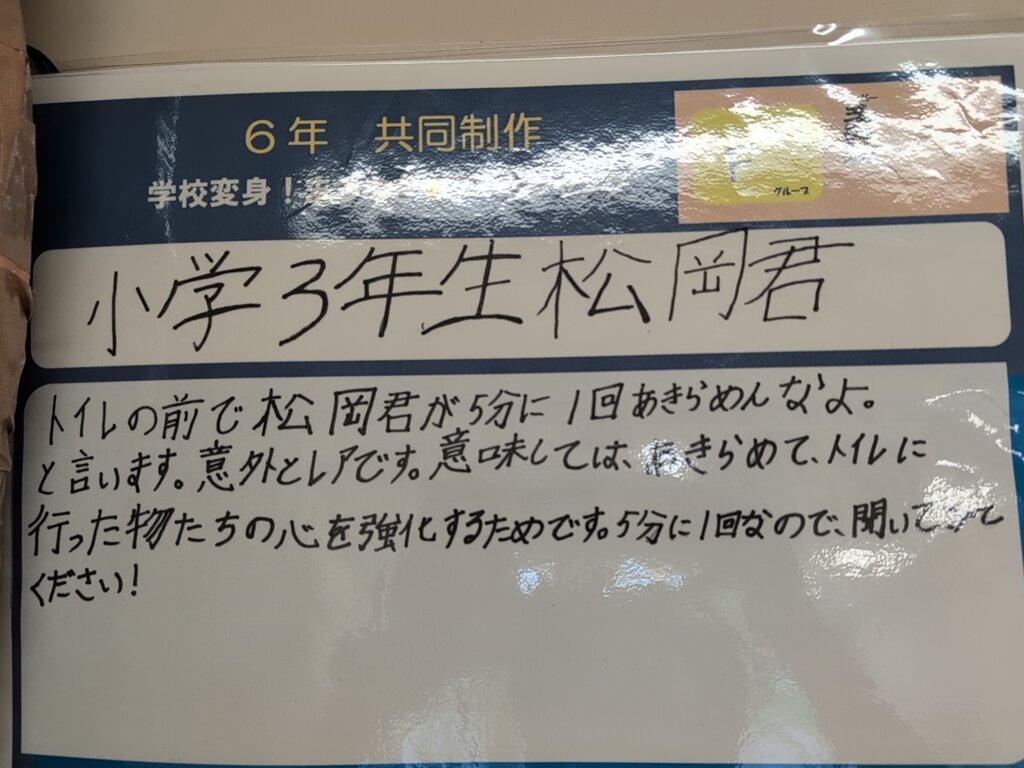 6年 共同制作
学校変身!
グループ
小学3年生松岡君
トイレの前で松岡君が5分に1回あきらめんなよ。
と言います。意外とレアです。意味しては、あきらめて、トイレに
行った物たちの心を強化するためです。5分に1回なので、聞いてみて
ください!